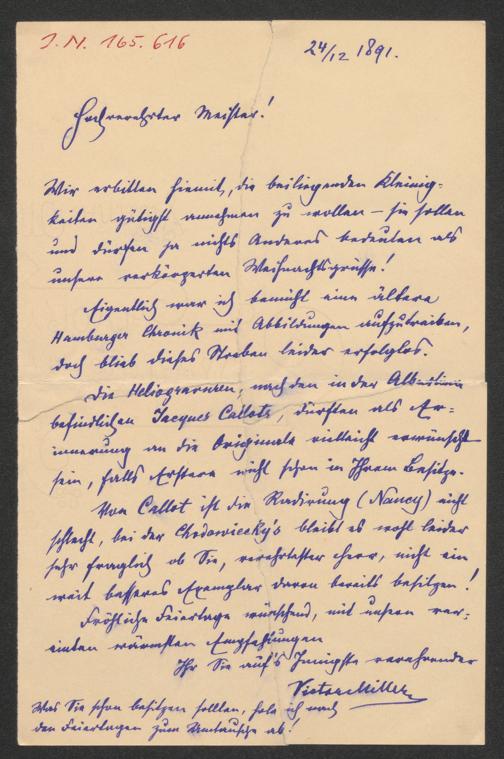 J.N. 165.616
24/12 1891.
Hochverehrter Meister!
Wir erbitten hiemit, die beiliegenden Kleinig-
keiten gütigst annehmen zu wollen – sie sollen
und dürfen ja nichts Anderes bedeuten als
unsere verkörperten Weihnachtsgrüsse!
Eigentlich war ich bemüht eine ältere
Hamburger Chronik mit Abbildungen aufzutreiben,
doch blieb dieses Streben leider erfolglos.
Die Heliogravuren, nach den in der Albertina
befindlichen Jacques Callots, dürften als Er-
innerung an die Originale vielleicht erwünscht
sein, falls Erstere nicht schon in Ihrem Besitze.
Von Callot ist die Radirung (Nancy) nicht
schlecht, bei der Chodowiecky's bleibt es wohl leider
sehr fraglich ob Sie, verehrtester Herr, nicht ein
weit besseres Exemplar davon bereits besitzen!
Fröhliche Feiertage wünschend, mit unsern ver-
einten wärmsten Empfehlungen
Ihr Sie auf's Innigste verehrender
Victor Miller
Was Sie schon besitzen sollten, hole ich nach
den Feiertagen zum Umtausche ab!